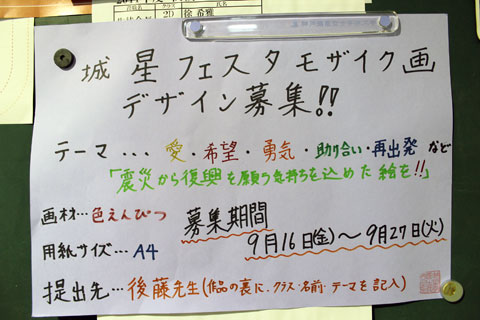 2D 徐 希雅
城 星 フェスタ モザイク画
デザイン募集!!
テーマ・・・愛・希望・勇気・助け合い・再出発 など
「震災から復興を願う気持ちを込めた絵を!!」
画材…色えんぴつ
募集期間
9月16日(金)〜9月27日(火)
用紙サイズ…A4
提出先…後藤先生(作品の裏に、クラス・名前・テーマを記入)